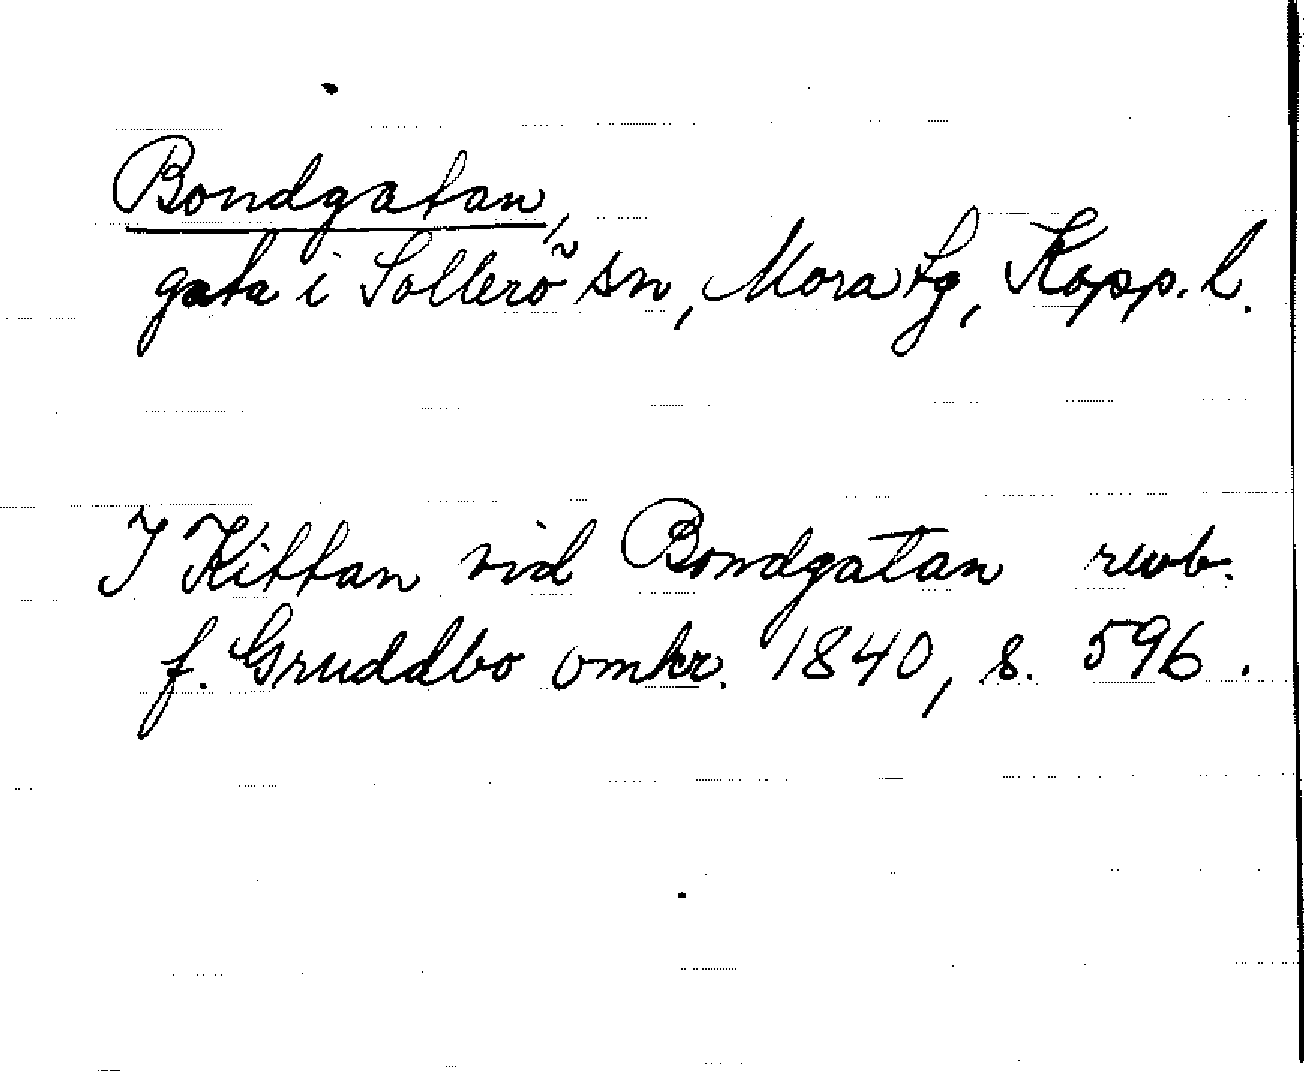 Bondgatan,
gata i Sollerö sn, Mora tg, Kopp. l.
I Kittan vid Bondgatan rwb.
f. Gruddbo omkr. 1840, s. 596.